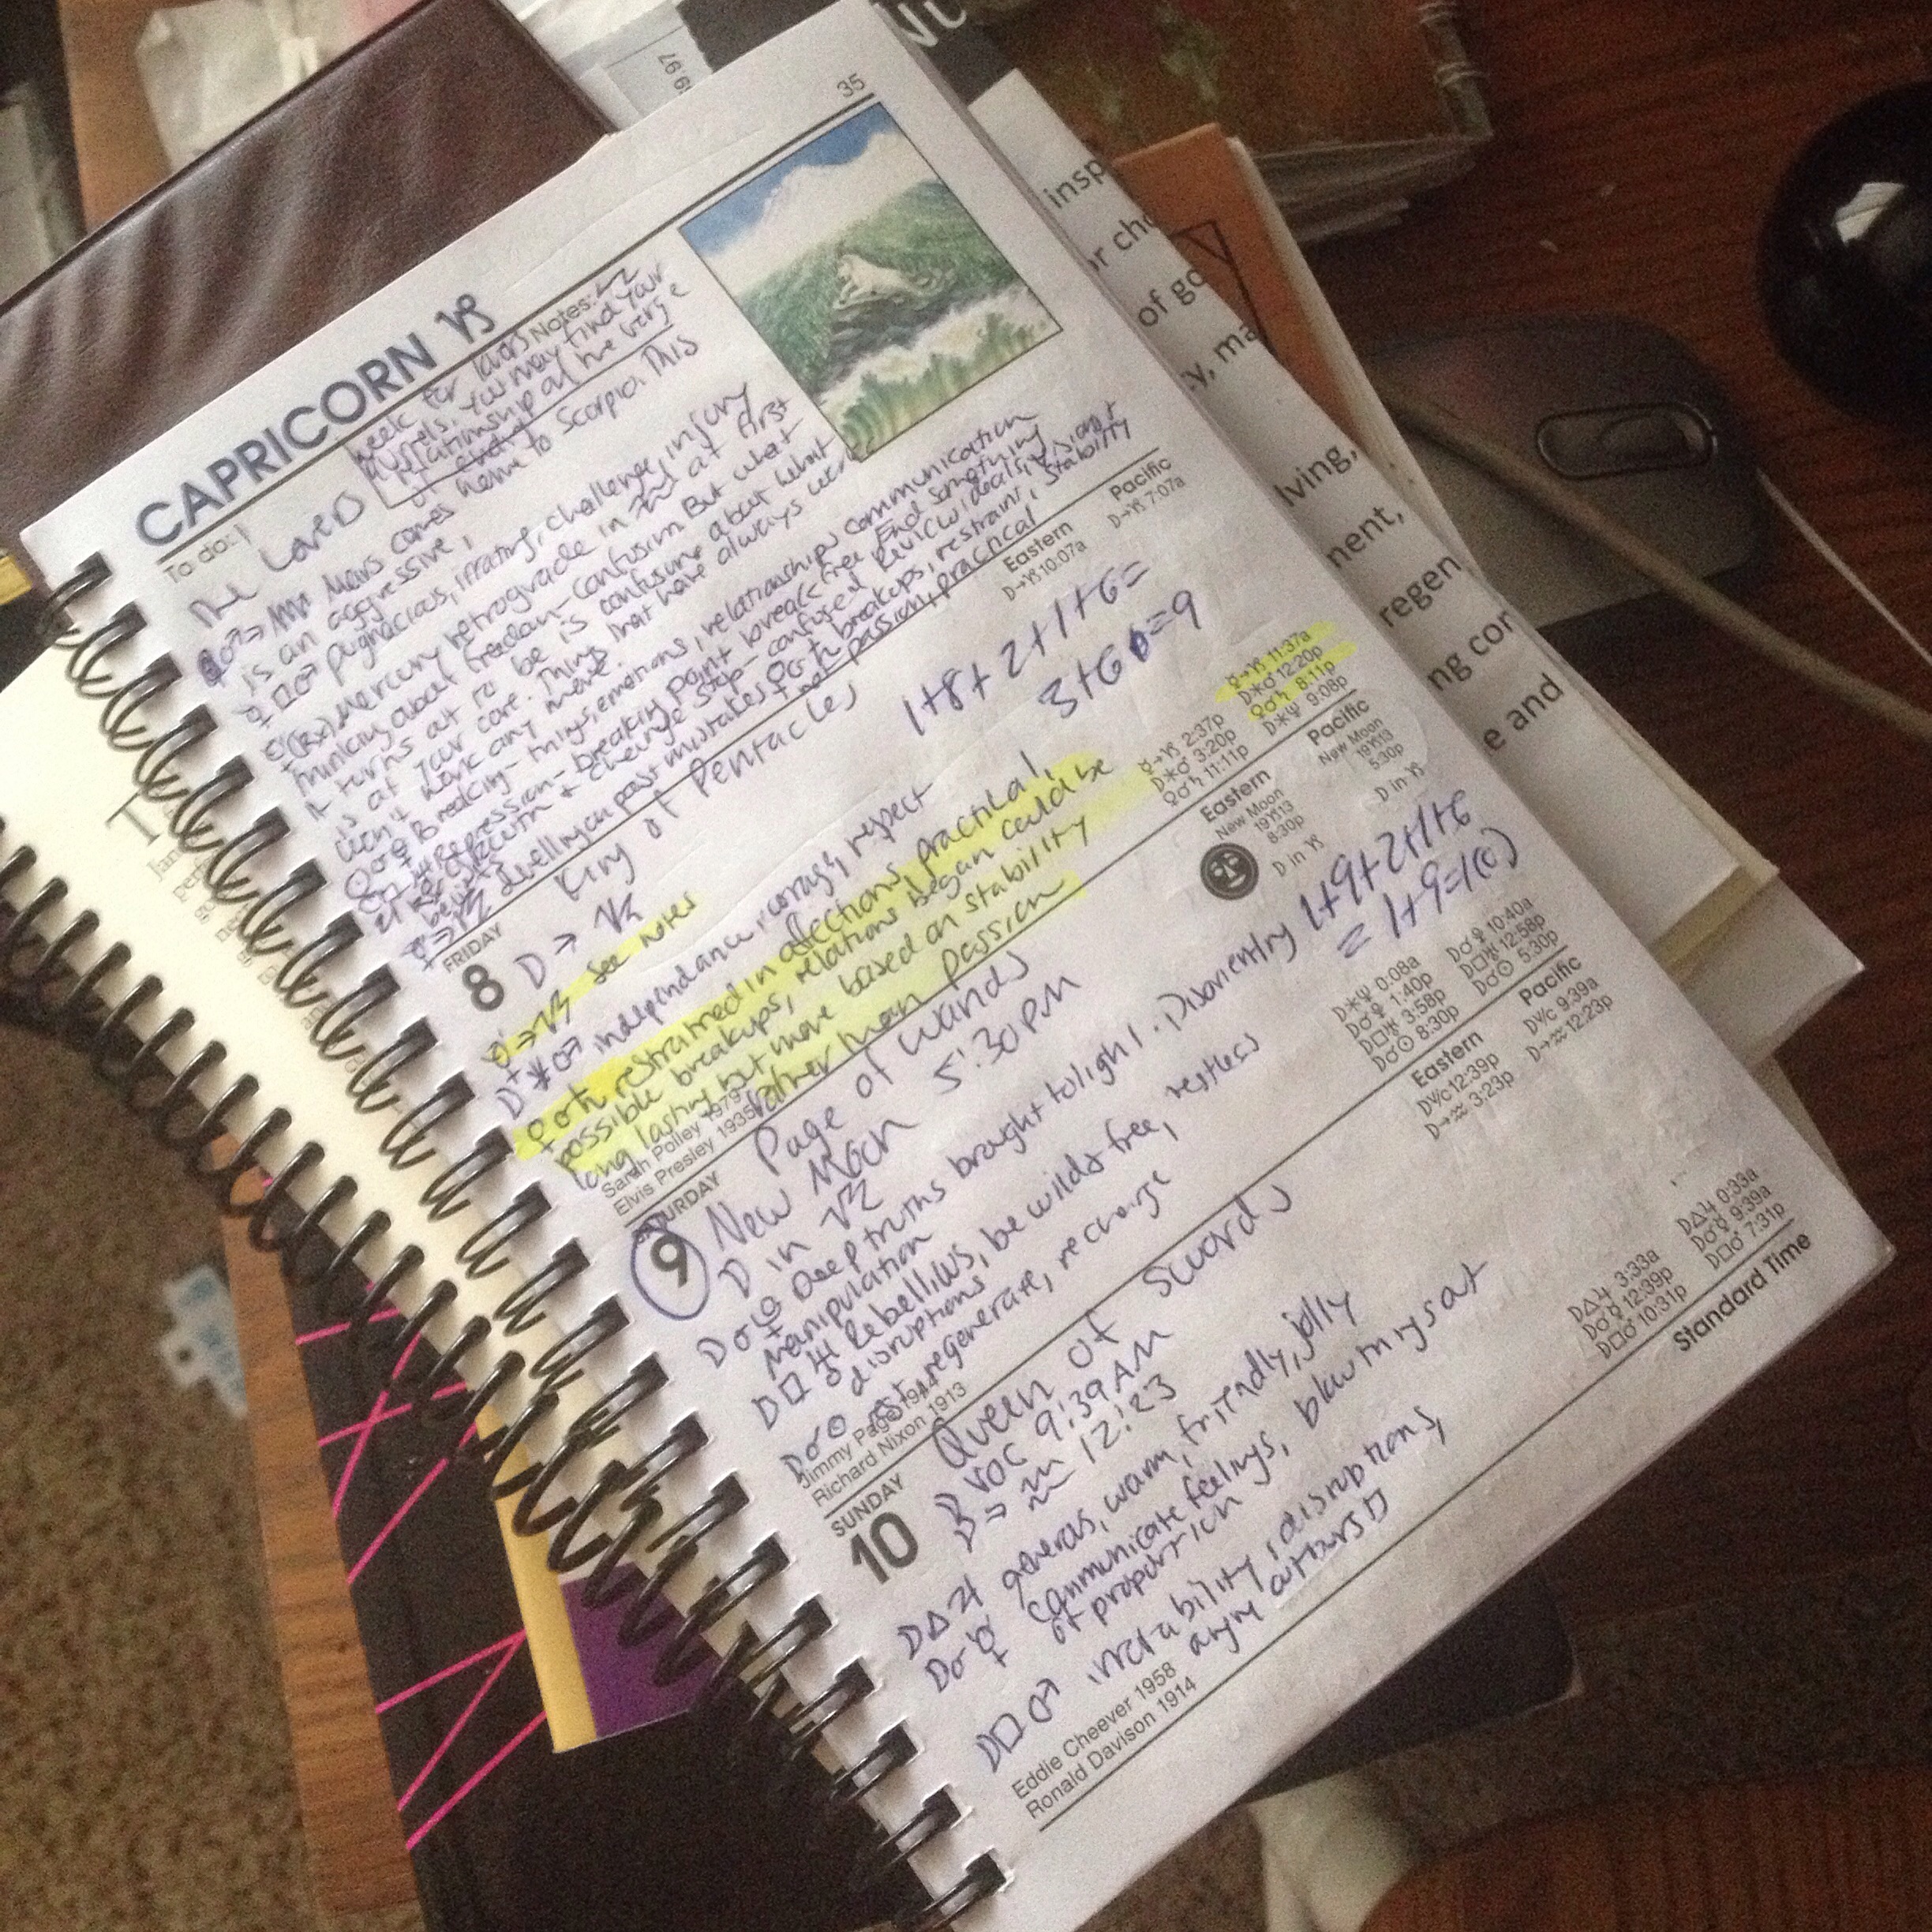 35
CAPRICORN ♑
To do:
Notes:
week for lovers
quarrels. You may find your
relationship at the verge
of
The Lovers
Mars comes home to Scorpio. This
is an aggressive,
pugnacious, irrating, challenge, injury
(Rx) Mercury retrograde in at first
thinking about freedom-confusion. But what
it turns out to be is confusion about what
is at your core. Things that have always work
won't work any more.
Breaking-things, emotions, relationships communication
Repression-breaking point break free End something
change stop-confused Review decisions +
dwelling on past mistakes breakups, restraint, stability
not passion, practical
FRIDAY
8
King of Pentacles
Eastern
☽→♑ 10:07a
Pacific
☽→♑ 7:07a
☽ → ♑
1+8+2+1+6=
3+6=9
see notes
☽⚹♂ independance, courage, respect
♀☌♄ restrained in affections, practical,
possible breakups, relations began could be
long lasting but more based on stability
rather than passion
☿→♑ 2:37p
☽⚹♂ 3:20p
♀☌♄ 11:11p
♀→♑ 11:37a
☽⚹♂ 12:20p
♀☌♄ 8:11p
☽⚹♆ 9:08p
Sarah Polley 1979
Elvis Presley 1935
SATURDAY
9
Page of Wands
New Moon 5:30 PM
☽ in ♑
Eastern
New Moon
19♑13
8:30p
☽ in ♑
Pacific
New Moon
19♑13
5:30p
☽ in ♑
1+9+2+1+6
= 1+9=1(0)
Deep truths brought to light. Disorienting
Manipulation
☽□♅ Rebellius, be wild & free, restless
disruptions
☽☌☉ rest regenerate, recharge
☽⚹♆ 0:08a
☽☌♀ 1:40p
☽□♅ 3:58p
☽☌☉ 8:30p
☽☌♀ 10:40a
☽□♅ 12:58p
☽☌☉ 5:30p
Jimmy Page 1944
Richard Nixon 1913
SUNDAY
10
Queen of Swords
☽ VOC 9:39 AM
☽ → ♒ 12:23
Eastern
☽v/c 12:39p
☽→♒ 3:23p
Pacific
☽v/c 9:39a
☽→♒ 12:23p
☽△♃ generos, warm, friendly, jolly
☽☌☿ communicate feelings, blow things out
of proportion
☽□♂ irratability, disruptions,
angry outbursts
☽△♃ 3:33a
☽☌☿ 12:39p
☽□♂ 10:31p
☽△♃ 0:33a
☽☌☿ 9:39a
☽□♂ 7:31p
Eddie Cheever 1958
Ronald Davison 1914
Standard Time
of go
ment,
regen
ng con
e and